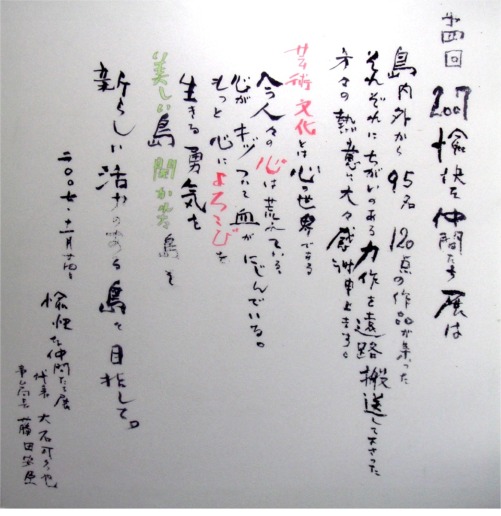 第四回 2007 愉快な仲間たち展は
島内外から 95名 120点の作品が集った
それぞれにちがいのある力作を遠路搬送して下さった
方々の熱意に大々感謝申上ます。
芸術文化とは心の世界である
今人々の心は荒れている。
心がキヅついて血がにじんでいる。
もっと心によろこびを
生きる勇気を
美しい島 開かれた島を
新らしい活力のある島を目指して。
二〇〇七・十一月
愉快な仲間たち展
代表 大石
事ム局長 藤田